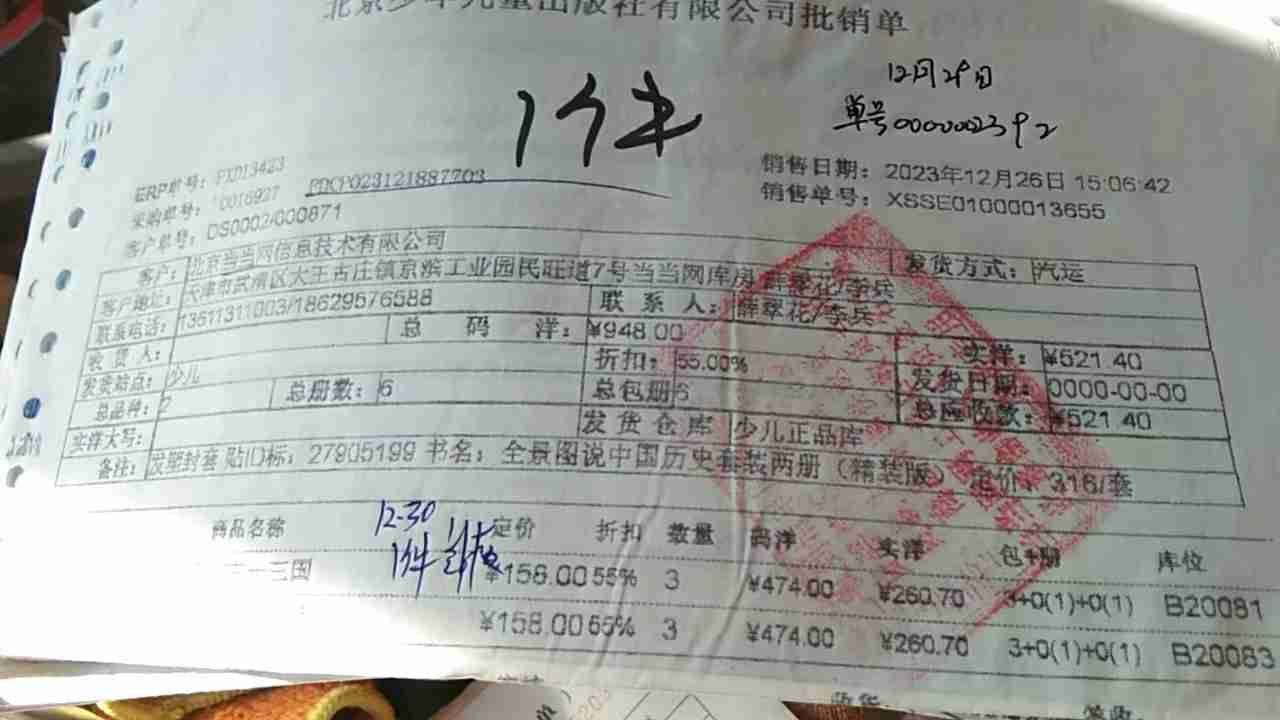 北京少年儿童出版社有限公司批销单
12月29日
1件
单号0000002392
ERP单号: PXD13423
销售日期: 2023年12月26日 15:06:42
采购单号: 10016927 PDCP023121887703
销售单号: XSSE01000013655
客户单号: DS0002/000871
客户: 北京当当网信息技术有限公司 发货方式: 汽运
客户地址: 天津市武清区大王古庄镇京滨工业园民旺道7号当当网库房 薛翠花/李兵
联系电话: 13611311003/18629576588 联系人: 薛翠花/李兵
收货人: 总码洋: ¥948.00 实洋: ¥521.40
发货站点: 少儿 折扣: 55.00% 发货日期: 0000-00-00
总品种: 2 总册数: 6 总包册 6 总应收款: ¥521.40
实洋大写: 发货仓库 少儿正品库
备注: 发塑封套 贴ID标: 27905199 书名: 全景图说中国历史套装两册(精装版) 定价: 316/套
12-30
1件
商品名称 定价 折扣 数量 码洋 实洋 包+册 库位
三国 ¥158.00 55% 3 ¥474.00 ¥260.70 3+0(1)+0(1) B20081
¥158.00 55% 3 ¥474.00 ¥260.70 3+0(1)+0(1) B20083
收货 签收